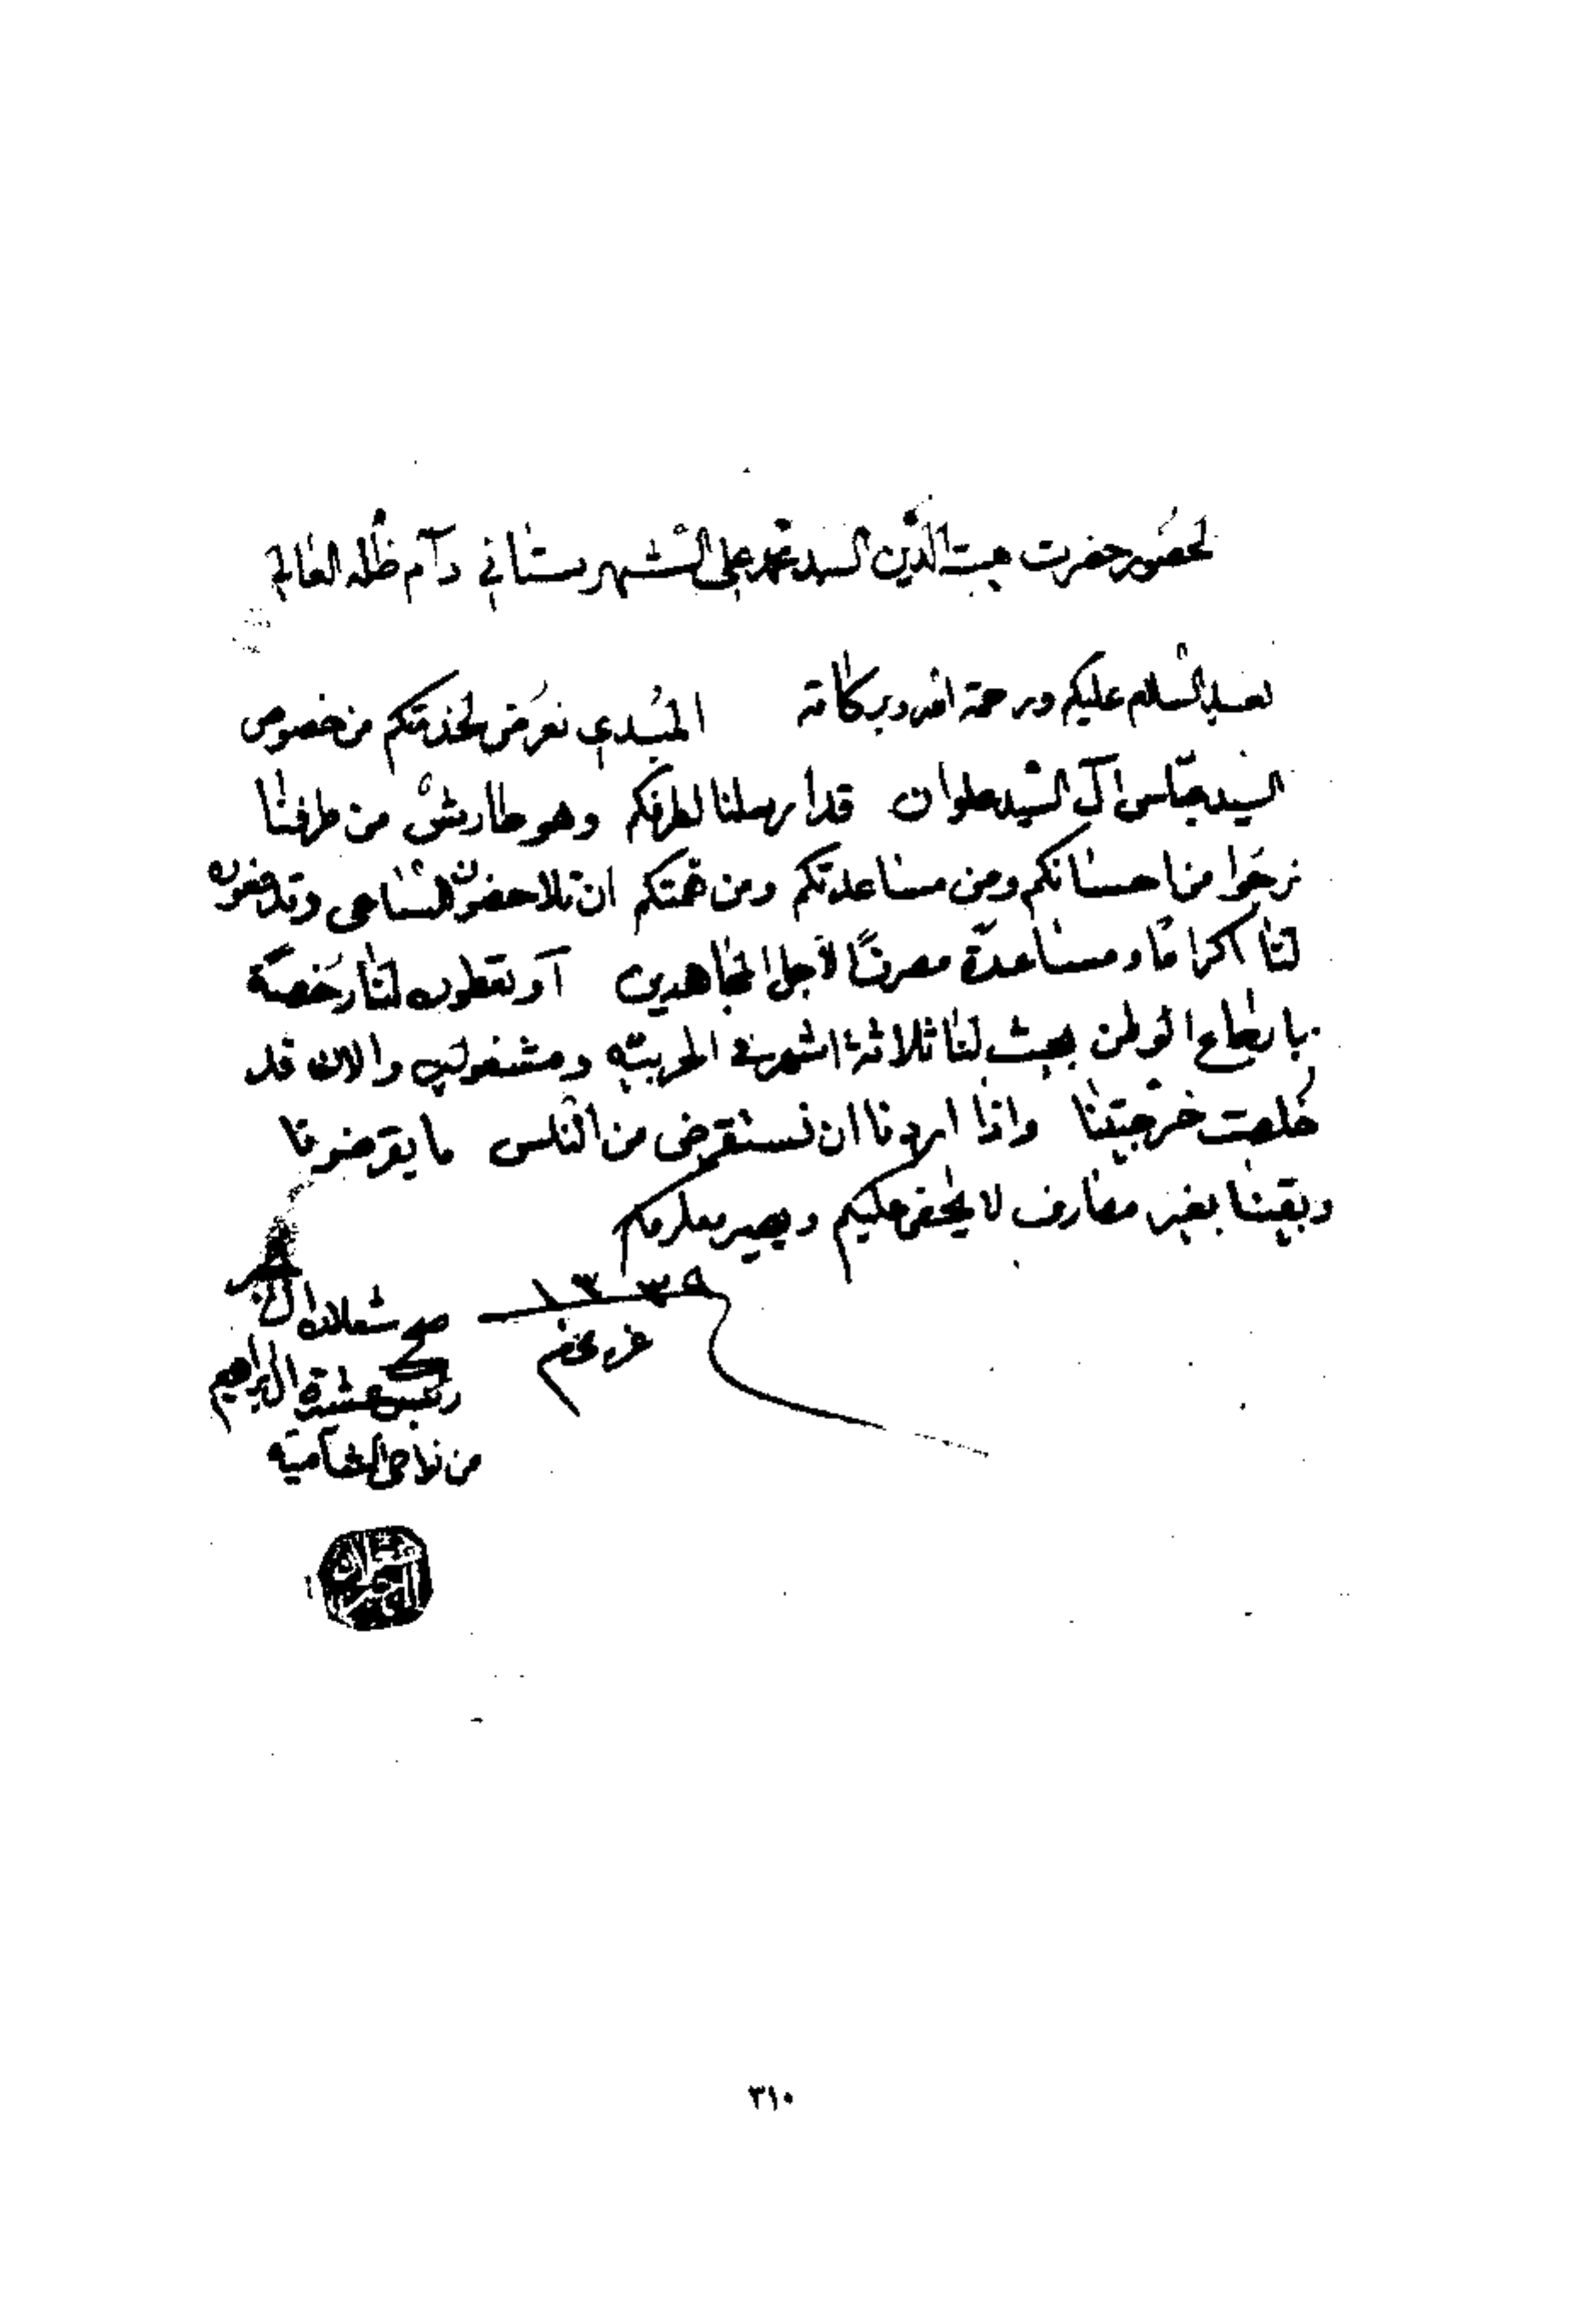 لحضور حضرت هبت الدّين السيد محمد علي الشهرستاني دام ظله العالي
بعد السلام عليكم ورحمة الله وبركاته المبدي نعرض لخدمتكم من خصوص
السيد عباس آل السيد علوان قد ارسلنا لطرفكم وهو طارش من طرفنا
نرجوا من احسانكم ومن مساعدتكم ومن همتكم ان تلاحضون وتدفعون
لنا اكراما ومساعدة مصرفًا لأجل المجاهدين آو تعطون لنا رخصة
بارجاع الوطن بحيث لنا ثلاثة اشهر في الحربيه ومشغولين والان قد
خلصت خرجيتنا واذا اردنا ان نستقرض من الناس ما يقرضونا
وبقينا بغير مصارف لا يخفى عليكم ويصير معلومكم
١٣٣٩
شعلان
رئيس عشيرة آل ابراهيم
من نواحي الشاميه
٣١٠